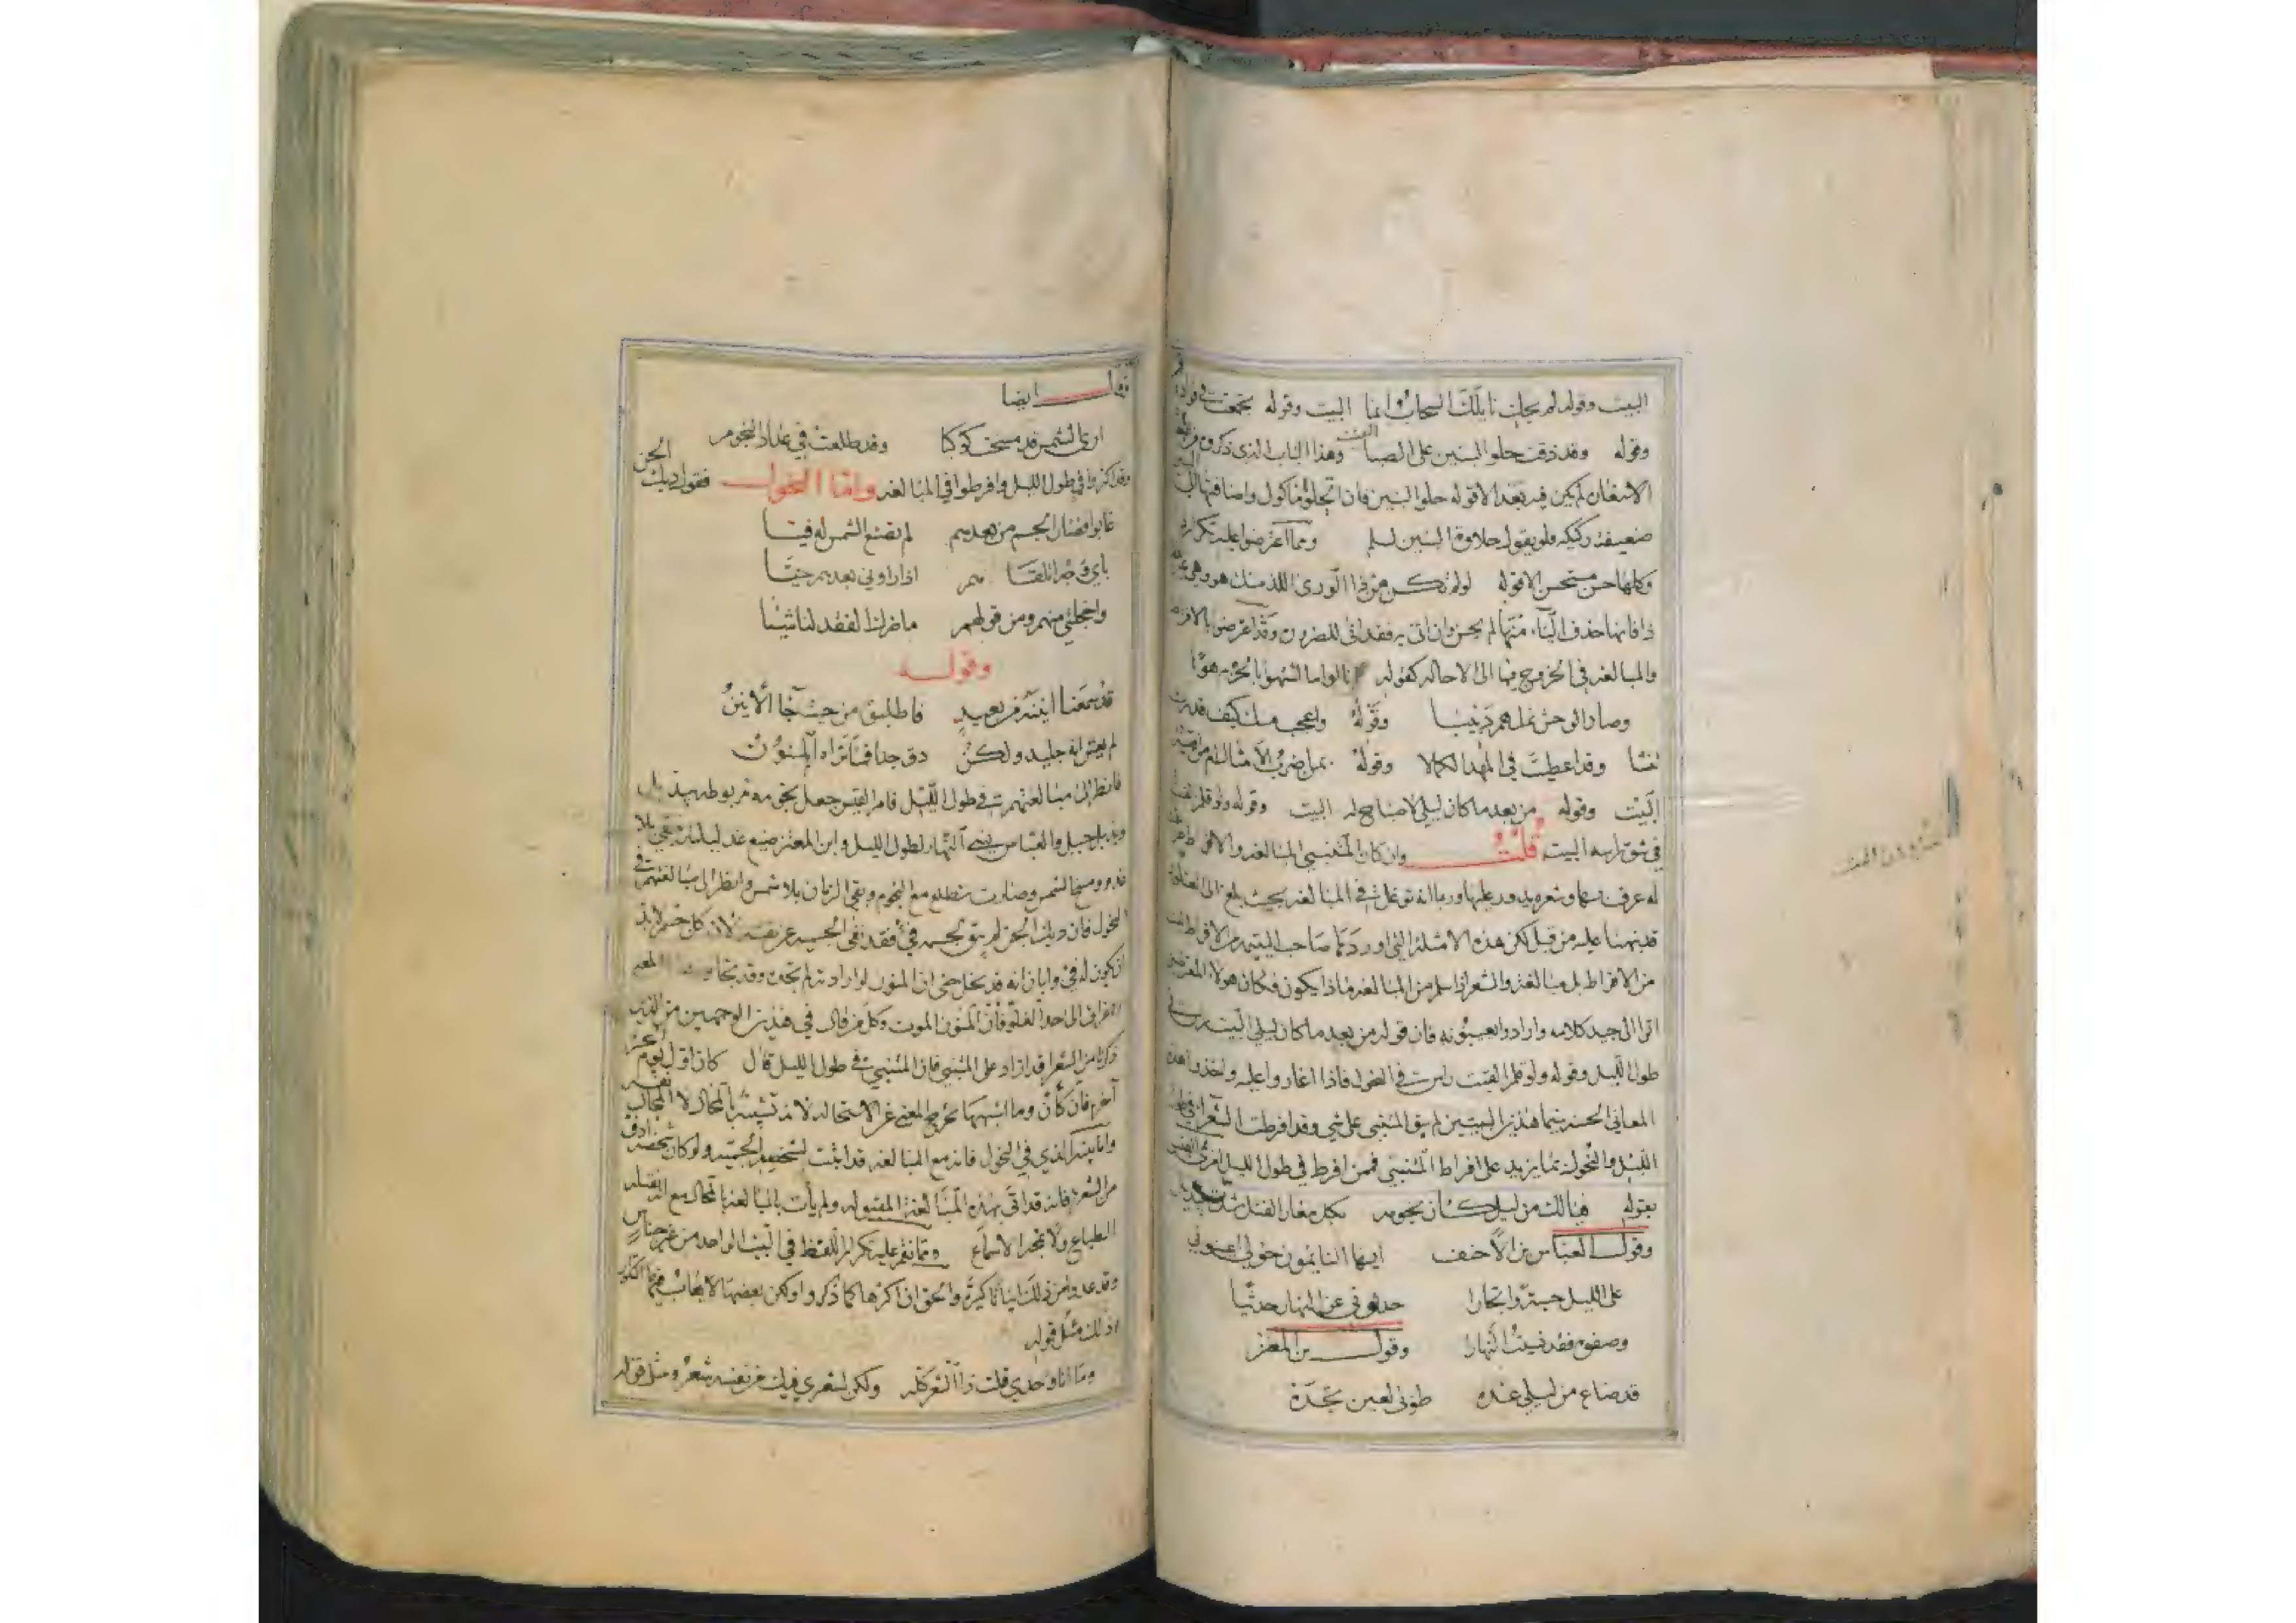 البيت وقوله لم يحك نايلك السحاب وانما البيت وقوله تجمعت في فواده
وقوله وقد ذقت حلوا البنين على الصبا البيت وهذا الباب الذي ذكروه
لم يكن فيه بعد الا قوله حلوا البنين فان ماكول واضافتها الى
ضعيفة ركيكة فلو يقول حلاوة البنين لسلم ومما اعترضوا عليه تكراره
وكلها حسن مستحسن الا قوله لو لم تكن من ذا الورى اللذ منك هو وهي
ذا فانها حذف الياء منها لم يحسن وان اتى به فقد اتى للضرورة وقد اعترضوا بالافراط
والمبالغة في الخروج فيها الى الاحالة كقوله نالوا ما اشتهوا بالحزم هونا
وصاد الوحش نملهم دبيبا وقوله واعجب منك كيف قدرت
تنشا وقد اعطيت في المهد الكمالا وقوله بمن اضرب الامثال ام من اقيسه
البيت وقوله من بعد ما كان ليلي لا صباح له البيت وقوله ولو قلم القيت
في شق راسه البيت قلت وان كان المتنبي المبالغة والافراط
له عرف باسمها وشعره يدور عليها وربما انه توغل في المبالغة بحيث بلغ الى
قد نبهنا عليه من قبل لكن هذه الامثلة التي اوردها صاحب اليتيمة من الافراط ليست
من الافراط بل مبالغة والشعر اذا سلم من المبالغة فماذا يكون فكان هولاء المعترضين
اتوا الى جيد كلامه وارادوا يعيبونه فان قوله من بعد ما كان ليلي البيت في
طول الليل وقوله ولو قلم القيت في النحول فاذا اغاروا عليه واخذوا هذه
المعاني الحسنة سيما هذين البيتين لم يبق للمتنبي على شي وقد افرطت الشعراء في طول
الليل والنحول بما يزيد على افراط المتنبي فمن افرط في طول الليل امرئ القيس
بقوله فيا لك من ليل كان نجومه بكل مغار الفتل شدت بيذبل
وقول العباس بن الاحنف ايها النايمون حولي اعينوني
على الليل حسبة واتجارا حدثوني عن النهار حديثا
وصفوه فقد نسيت النهارا وقول بن المعتز
قد ضاع من ليلي غده طوبى لعين تجده
وقال ايضا
ارى الشمس قد مسخت كوكبا وقد طلعت في عداد النجوم
وقد اكثروا في طول الليل وافرطوا في المبالغة واما النحول فقول ديك الجن
غابوا فصار الجسم من بعدهم لم تصنع الشمس له فيا
باي وجه اتلقاهم اذا راوني بعدهم حيا
واخجلتي منهم ومن قولهم ما ضرك الفقد لنا شيا
وقوله
قد سمعنا انينه من بعيد فاطلبوه من حيث جا الانين
لم يعش انه جليد ولكن دق جدا فما تراه المنون
فانظر الى مبالغتهم في طول الليل فامرؤ القيس جعل نجومه مربوطة بيذبل
ويذبل جبل والعباس نسي النهار لطول الليل وابن المعتز ضيع غد ليلته وبقي بلا
غد ومسخ الشمس وصارت تطلع مع النجوم وبقي الزمان بلا شمس وانظر الى مبالغتهم في
النحول فان ديك الجن لم يبق لجسمه في فقد نفى الجسم عن نفسه لان كل جسم لابد
ان يكون له في وابان انه قد نحل حتى ان المنون لو ارادته لم تجده وقد تجاوز
الى حد الغلو فان المنون الموت وكل من قال في هذين الوجهين من الذين
ذكرنا من الشعراء قد ازاد على المتنبي فان المتنبي في طول الليل قال كان اول يوم الحشر
آخره فان كان وما اشبهها تخرج المعنى عن الاستحالة لانه تشبيه بالمحال لا المحال نفسه
واما بيته الذي في النحول فانه مع المبالغة قد اثبت لشخصه الجسمية ولو كان شخصه ادق
من الشعرة فانه قد اتى بهذه المبالغة المقبولة ولم يأت بالمبالغة بالمحال مع
الطباع ولا تمجه الاسماع ومما نقم عليه تكرار اللفظ في البيت الواحد من غير جناس
وقد عدوا من ذلك ابياتا كثيرة والحق ان اكثرها كما ذكروا ولكن بعضها لا يعاب فيها التكرار
اذ ذلك مثل قوله
وما انا وحدي قلت ذا الشعر كله ولكن لشعري فيك من نفسه شعر ومثل قوله